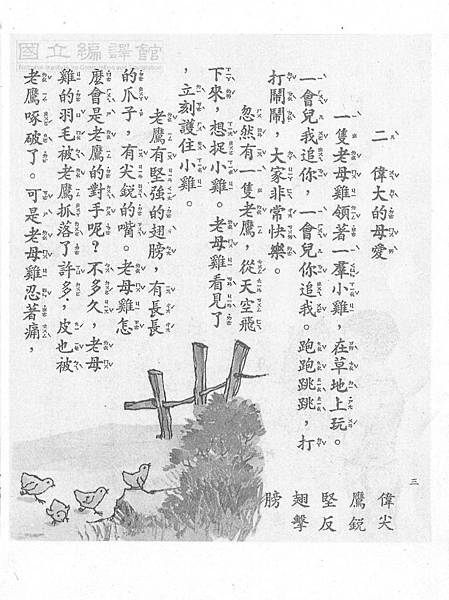 國立編譯館
二 偉大的母愛
一隻老母雞領著一羣小雞,在草地上玩。
一會兒我追你,一會兒你追我。跑跑跳跳,打
打鬧鬧,大家非常快樂。
忽然有一隻老鷹,從天空飛
下來,想捉小雞。老母雞看見了
,立刻護住小雞。
老鷹有堅強的翅膀,有長長
的爪子,有尖銳的嘴。老母雞怎
麼會是老鷹的對手呢?不多久,老母
雞的羽毛被老鷹抓落了許多,皮也被
老鷹啄破了。可是老母雞忍著痛,
三
偉尖
鷹銳
堅反
翅擊
膀